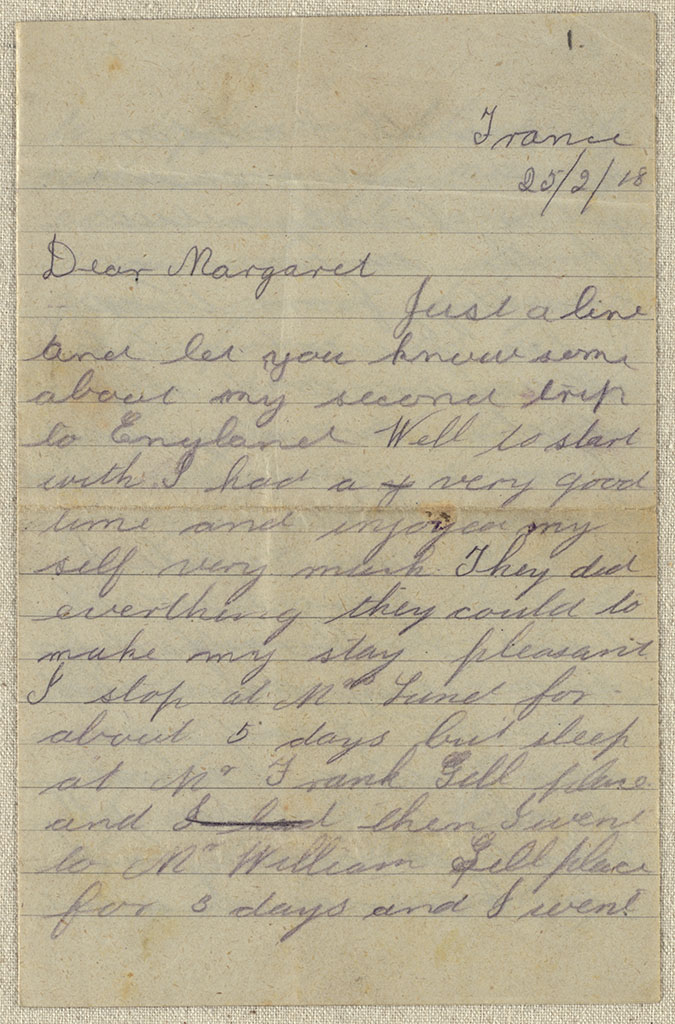 1.
France
25/2/18
Dear Margaret
Just a line
and let you know some
about my second trip
to England Well to start
with I had a very good
time and injoyed my
self very much They did
everthing they could to
make my stay pleasant
I stop at Mrs Lund for
about 5 days but sleep
at Mr Frank Gill place
and I had then I went
to Mr William Gill place
for 3 days and I went